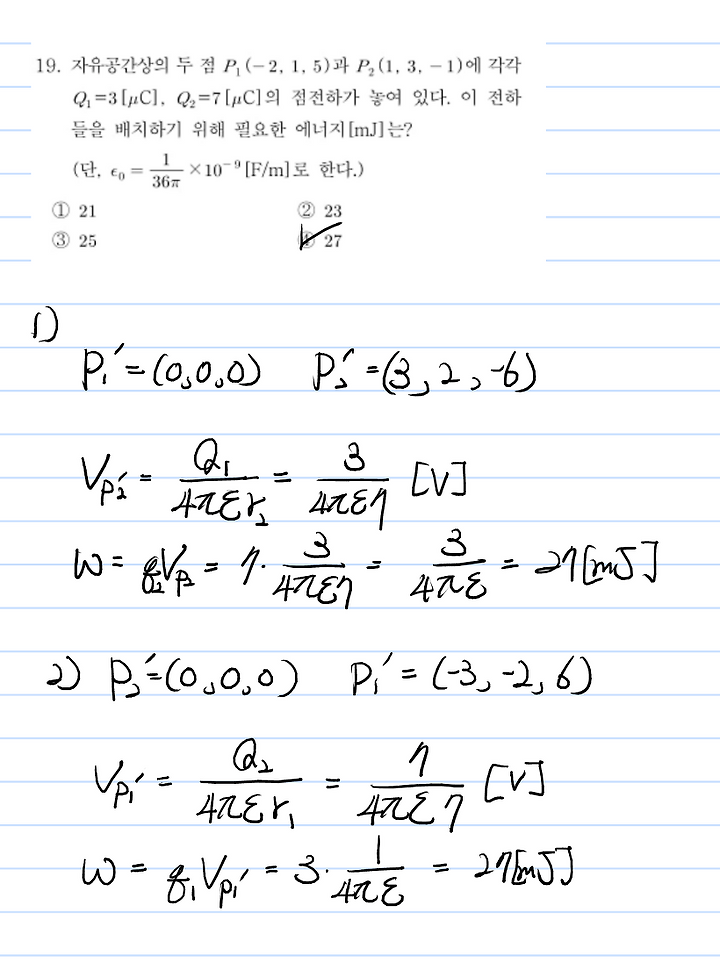 19. 자유공간상의 두 점 P₁(−2, 1, 5)과 P₂(1, 3, −1)에 각각
Q₁=3[μC], Q₂=7[μC]의 점전하가 놓여 있다. 이 전하
들을 배치하기 위해 필요한 에너지[mJ]는?
(단, ε₀ = 1/36π × 10⁻⁹[F/m]로 한다.)
① 21 ② 23
③ 25 ④ 27
1)
P₁′ = (0,0,0) P₂′ = (3, 2, -6)
V_P₂′ = Q₁/4πεr₂ = 3/4πε7 [V]
W = q₂V_P₂ = 7· 3/4πε7 = 3/4πε = 27[mJ]
2) P₂′ = (0,0,0) P₁′ = (-3, -2, 6)
V_P₁′ = Q₂/4πεr₁ = 7/4πε7 [V]
W = q₁V_P₁′ = 3· 1/4πε = 27[mJ]